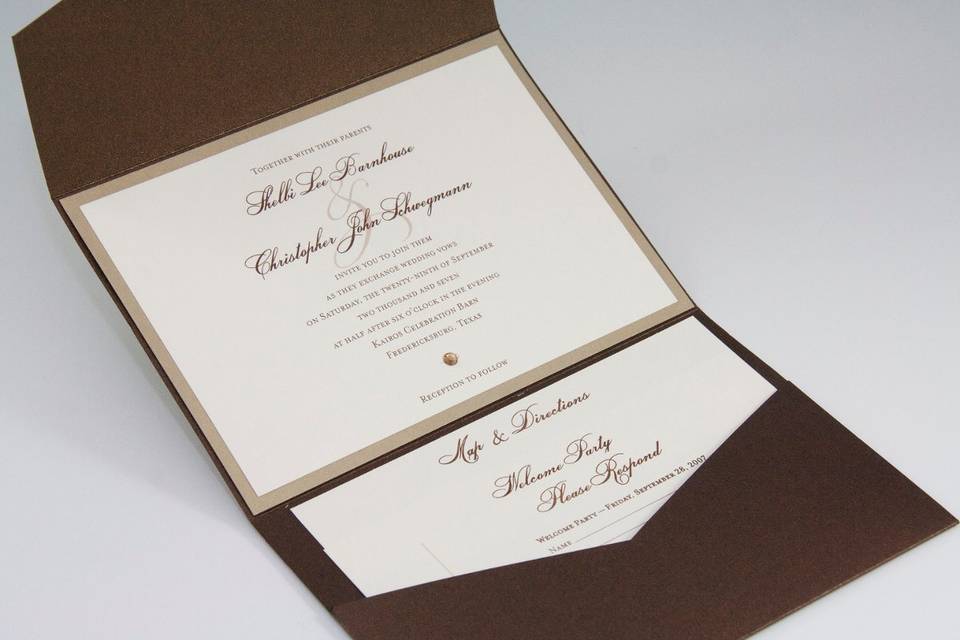 Together with their parents
Shelbi Lee Barnhouse
&
Christopher John Schwegmann
invite you to join them
as they exchange wedding vows
on Saturday, the twenty-ninth of September
two thousand and seven
at half after six o'clock in the evening
Kairos Celebration Barn
Fredericksburg, Texas
Reception to follow
Map & Directions
Welcome Party
Please Respond
Welcome Party—Friday, September 28, 2007
Name